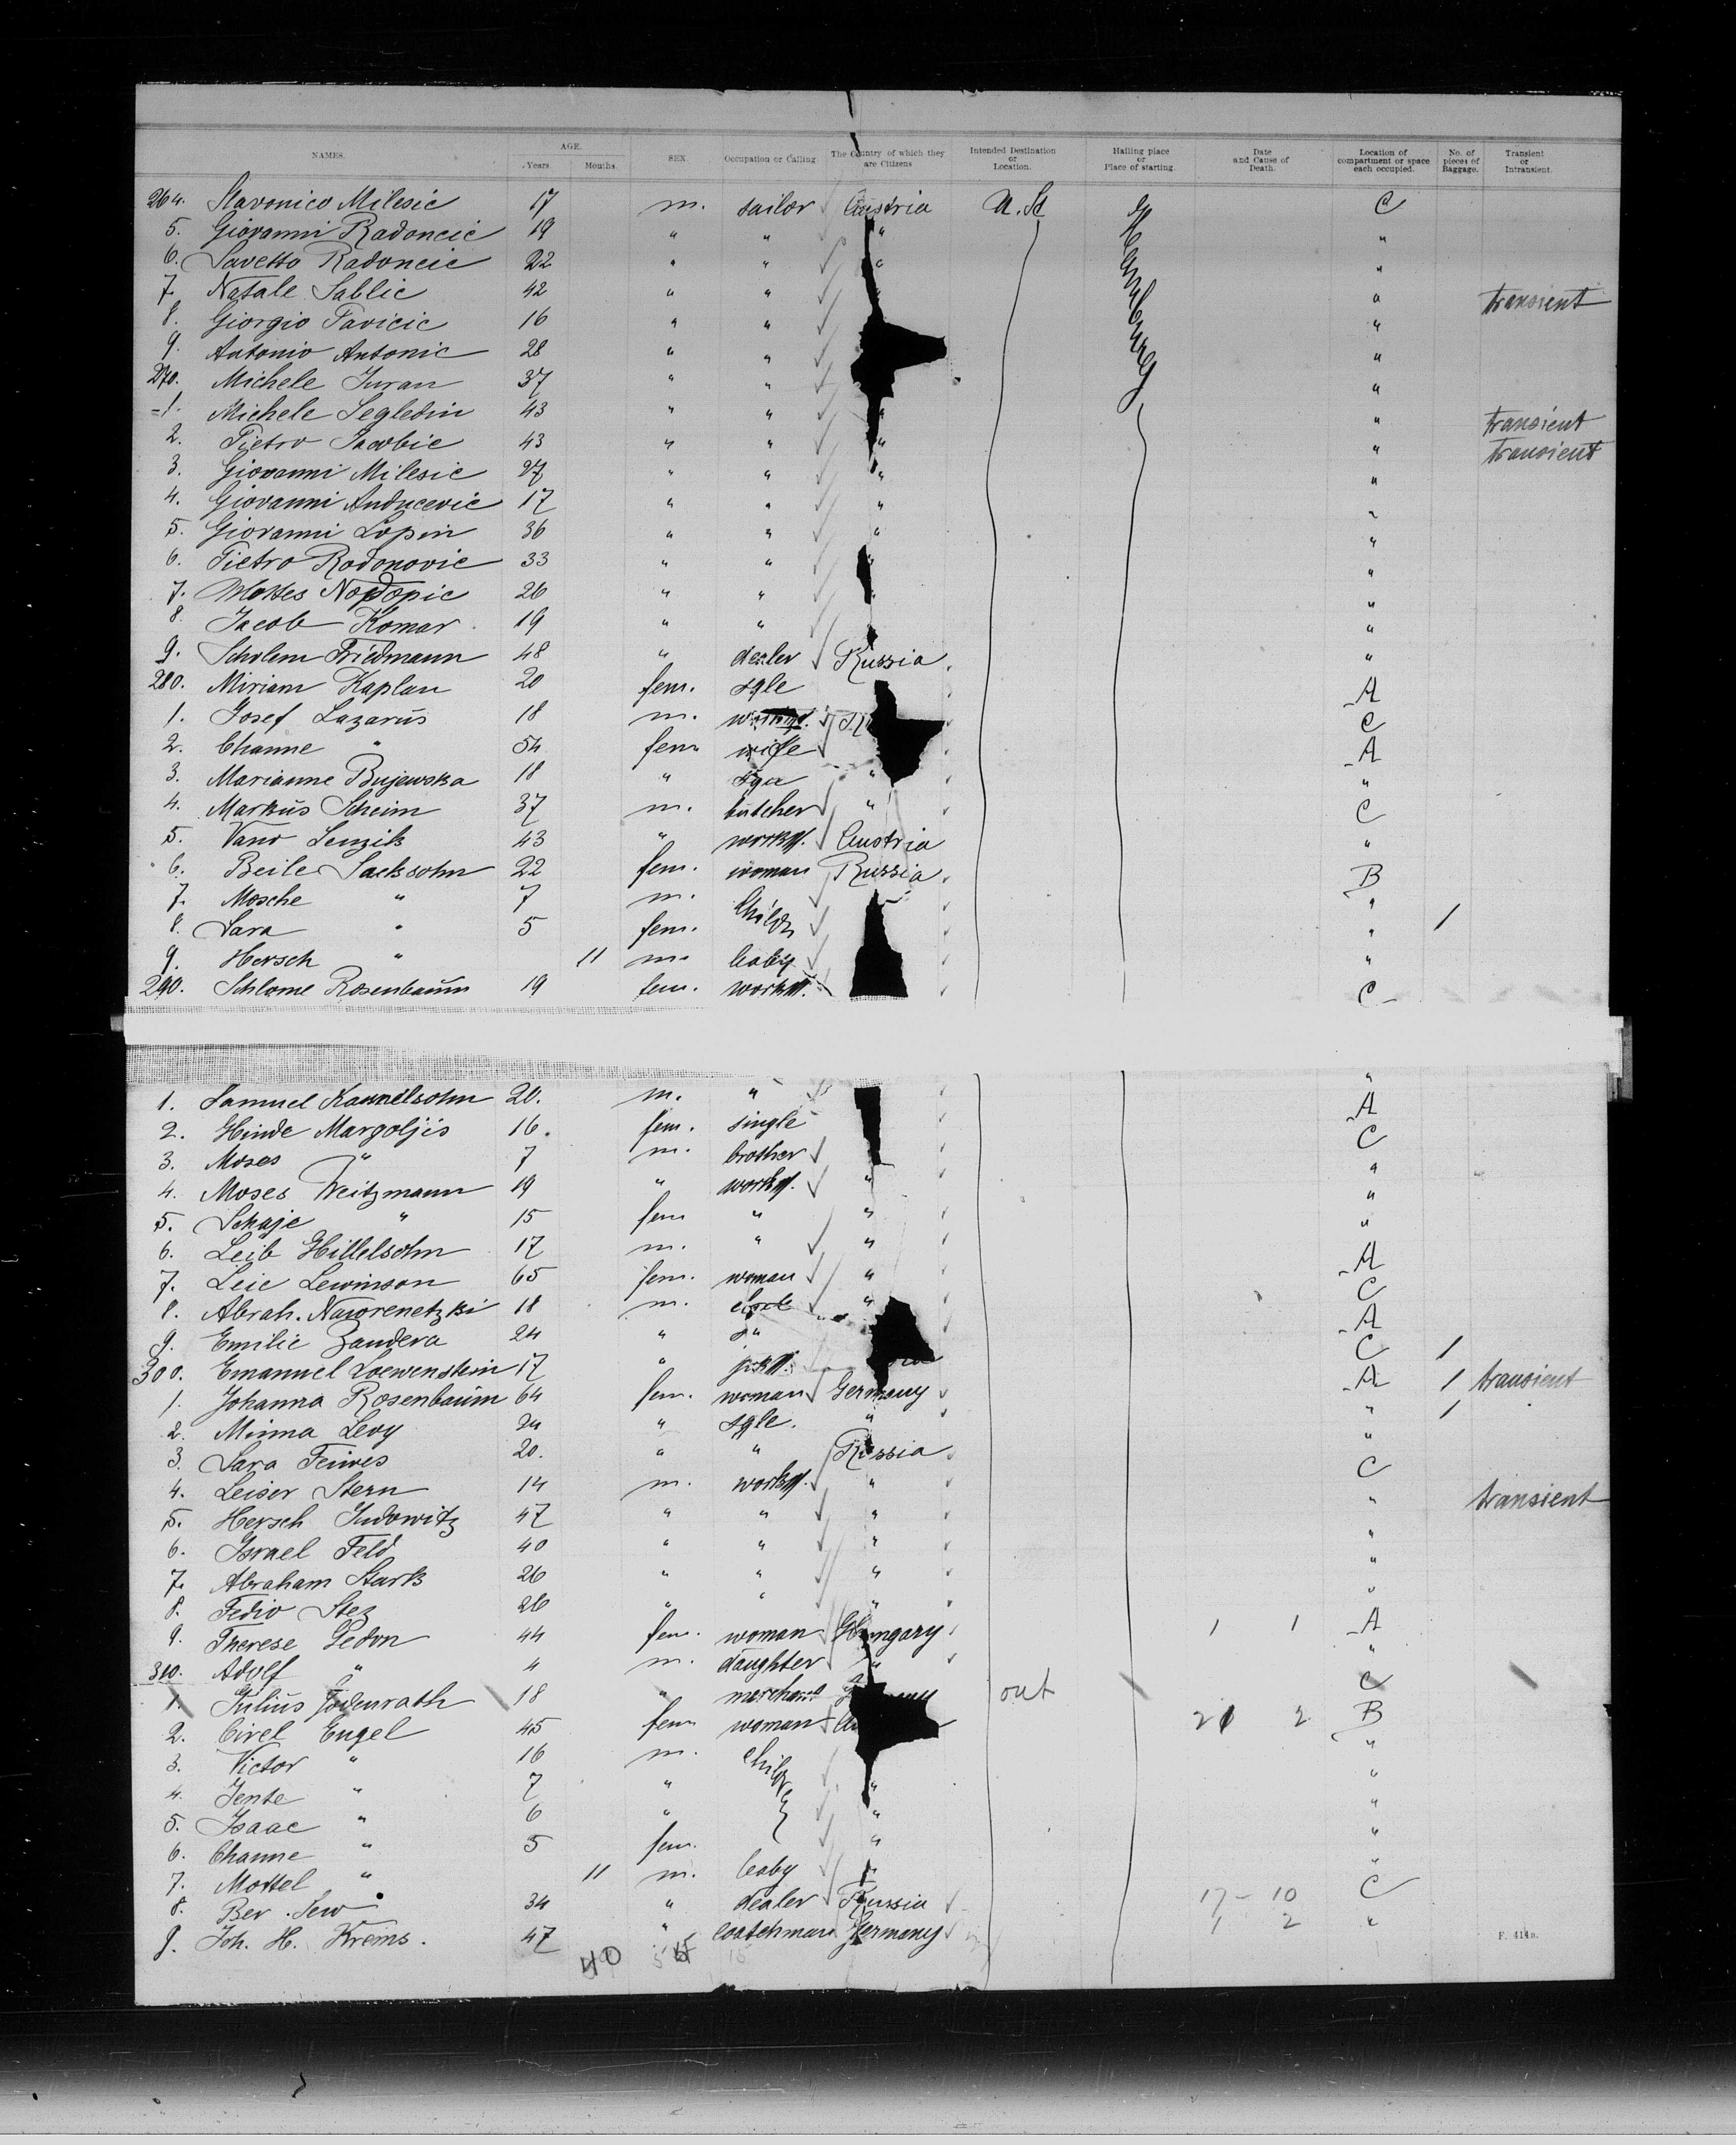 NAMES. AGE. Years. Months. SEX. Occupation or Calling The Country of which they are Citizens Intended Destination or Location. Hailing place or Place of starting. Date and Cause of Death. Location of compartment or space each occupied. No. of pieces of Baggage. Transient or Intransient.
264. Slavonico Milesic 17 m. sailor Austria U. St Hamburg C
5. Giovanni Radoncic 19 " " " "
6. Savetto Radoncic 22 " " " "
7. Natale Sablic 42 " " " transient
8. Giorgio Pavicic 16 " " "
9. Antonio Antonic 28 " " "
270. Michele Juran 37 " " "
1. Michele Segledin 43 " " " " transient
2. Pietro Jacobic 43 " " " " transient
3. Giovanni Milesic 27 " " " "
4. Giovanni Anducevic 17 " " " "
5. Giovanni Lopin 36 " " " "
6. Pietro Rodonovic 33 " " "
7. 26 " " "
8. Jacob Komar 19 " " "
9. Scholem Friedmann 48 " dealer Russia "
280. Miriam Kaplan 20 fem. sgle A
1. Josef Lazarus 18 m. C
2. Channe " 54 fem wife A
3. Marianne Bujewska 18 " " "
4. Markus Scheim 37 m. butcher " C
5. Vano Lenzik 43 " workm. Austria "
6. Beile Sacksohn 22 fem. woman Russia B
7. Mosche " 7 m. Childr "
8. Sara " 5 fem. " 1
9. Hersch " 11 m. baby "
290. Schlome Rosenbaum 19 fem. workm. C
1. Samuel 20. m. " "
2. Hinde Margoljis 16. fem. single A
3. Moses " 7 m. brother C
4. Moses Weitzmann 19 " workm. " "
5. Schaje " 15 fem " " "
6. Leib Hillelsohn 17 m. " " "
7. Leie Lewinson 65 fem. woman " A
8. Abrah. Naworenetzki 18 m. " C
9. Emilie Zandera 24 " A
300. Emanuel Loewenstein 17 " C 1
1. Johanna Rosenbaum 64 fem. woman Germany A 1 transient
2. Minna Levy " sgle. " " 1
3. Sara Feiwes 20. " " Russia "
4. Leiser Stern 14 m. workm. " C
5. Hersch Judowitz 47 " " " " transient
6. Israel Feld 40 " " " "
7. Abraham Stark 26 " " " "
8. Fedio Stez 26 " " " "
9. Therese Gedon 44 fem. woman Hungary 1 1 A
310. Adolf " 4 m. daughter " "
1. Julius 18 " merchand out C
2. Civel Engel 45 fem woman 21 2 B
3. Victor " 16 m. Childr "
4. Jente " 7 " " "
5. Isaac " 6 " " "
6. Channe " 5 fem. " "
7. Mottel " 11 m. baby "
8. Ber Lew 34 " dealer Russia 17-10 C
9. Joh. H. Krems. 47 " coatchman Germany 1 2 "
40
F. 414a.